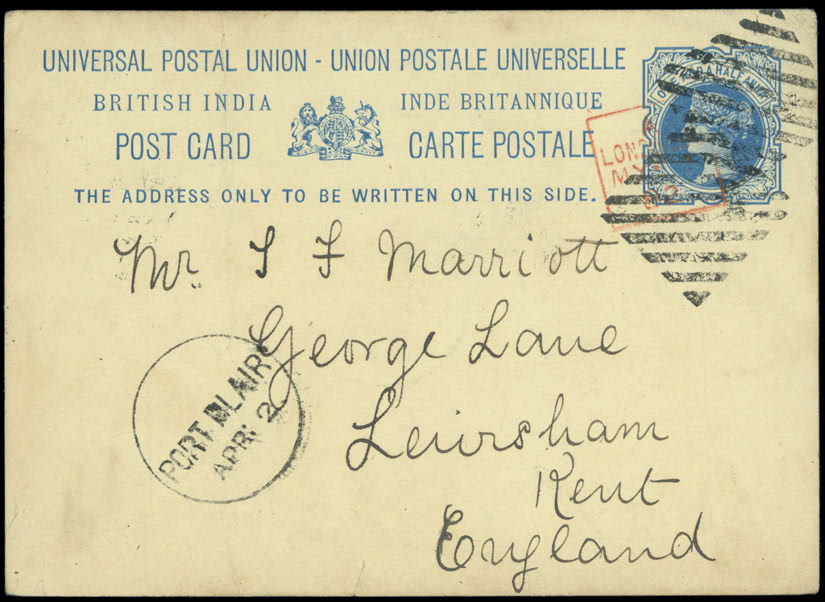 UNIVERSAL POSTAL UNION - UNION POSTALE UNIVERSELLE
BRITISH INDIA INDE BRITANNIQUE
POST CARD CARTE POSTALE
THE ADDRESS ONLY TO BE WRITTEN ON THIS SIDE.
HALF
LOND
MY
Mr. S F Marriott
George Lane
Lewisham
Kent
England
PORT BLAIR
APR 2